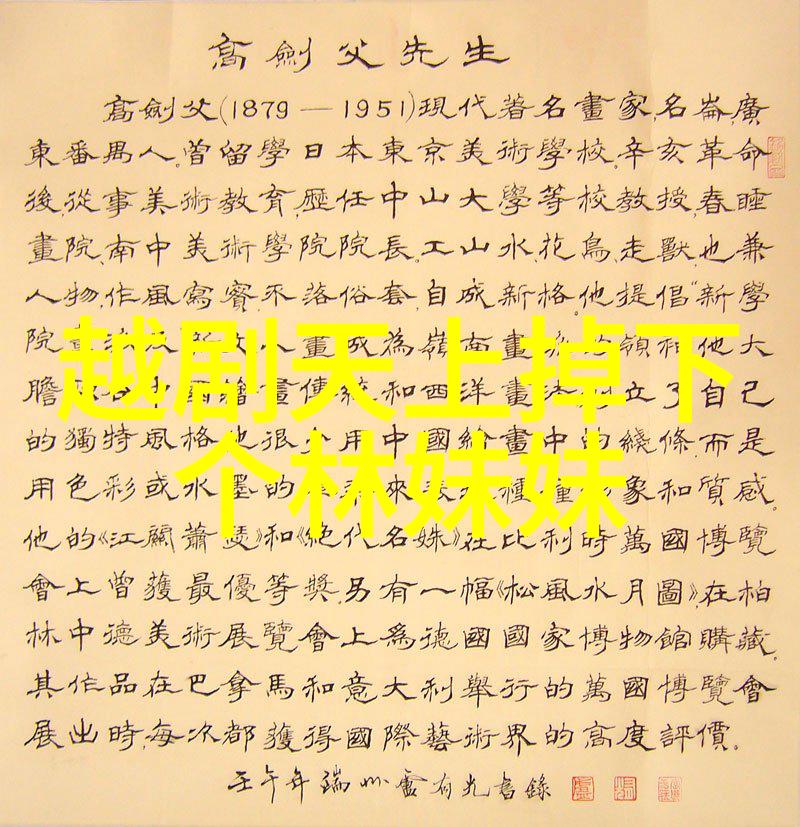 高劍父先生
高劍父(1879—1951)現代著名畫家,名崙,廣
東番禺人。曾留學日本東京美術學校。辛亥革命
後,從事美術教育,歷任中山大學等校教授,春睡
畫院,南中美術學院院長。工山水,花鳥,走獸,也兼
人物,作風寫實,不落俗套,自成新格。他提倡"新學
院 人畫 成為嶺南畫 領 他大
膽 中國繪畫傳統和西洋畫法 立了自己
的獨特風格他很少用中國繪畫中的綫條,而是
用色彩或水墨的 來表 種 象和質感。
他的《江關蕭瑟》和《絕代名姝》在比利時萬國博覽
會上曾獲最優等獎,另有一幅《松風水月圖》,在柏
林中德美術展覽會上為德國國家博物館購藏。
其作品在巴拿馬和意大利舉行的萬國博覽會
展出時,每次都獲得國際藝術界的高度評價。
壬午年端州盧有光書錄
越剧天上掉下
个林妹妹